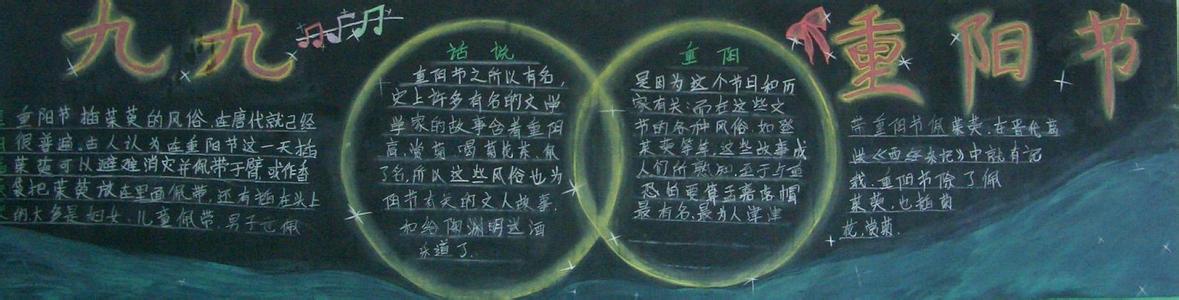 九九
重阳节
重阳节插茱萸的风俗,在唐代就已经
很普遍.古人认为在重阳节这一天插
茱萸可以避难消灾并佩带于臂或作香
袋把茱萸放在里面佩带,还有插在头上
的大多是妇女、儿童佩带.男子也佩
话说
重阳节之所以有名,
史上许多有名的文学
学家的故事含着重阳
高,赏菊,喝菊花茶,佩
了名,所以这些风俗也为
阳节有关的文人故事.
和给陶渊明送酒
乐道了.
重阳
是因为这个节日和历
家有关;而在这些文
节的各种风俗.如登
茱萸等等.这些故事成
人们所熟知.至于与重
恐怕要算孟嘉落帽
最有名,最为人津津
带.重阳节佩茱萸.在晋代葛
洪《西经杂记》中就有记
载.重阳节除了佩
茱萸.也插菊
花,赏菊.